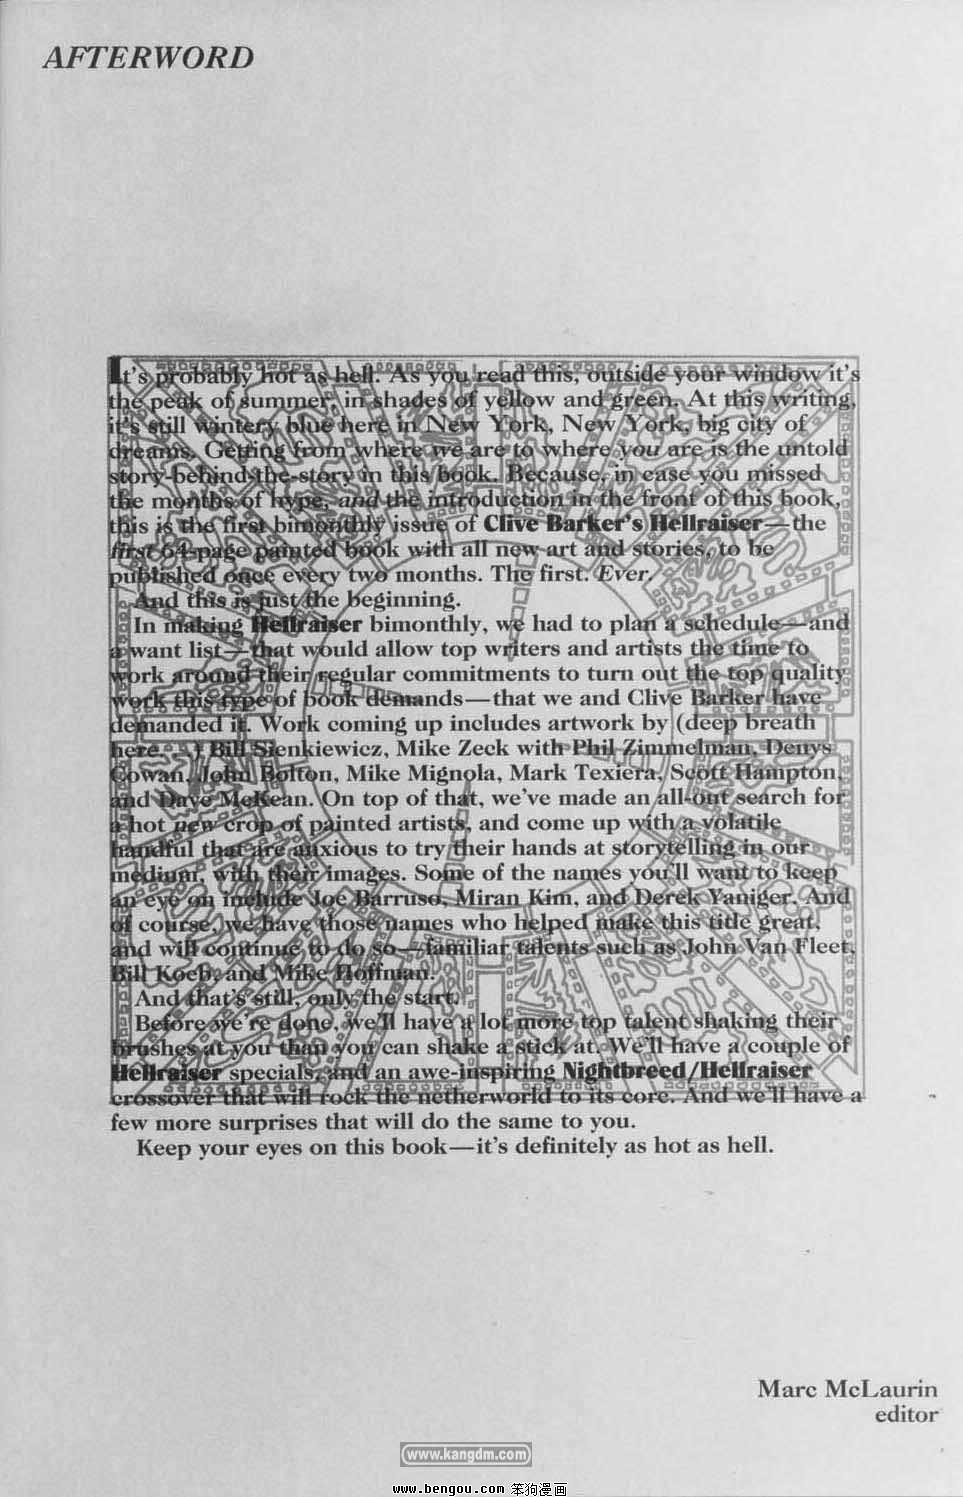 AFTERWORD
It's probably hot as hell. As you read this, outside your window it's
the peak of summer, in shades of yellow and green. At this writing,
it's still wintery blue here in New York, New York, big city of
dreams. Getting from where we are to where you are is the untold
story-behind-the-story in this book. Because, in case you missed
the months of hype, and the introduction in the front of this book,
this is the first bimonthly issue of Clive Barker's Hellraiser—the
first 64-page painted book with all new art and stories, to be
published once every two months. The first. Ever.
And this is just the beginning.
In making Hellraiser bimonthly, we had to plan a schedule—and
a want list—that would allow top writers and artists the time to
work around their regular commitments to turn out the top quality
work this type of book demands—that we and Clive Barker have
demanded it. Work coming up includes artwork by (deep breath
here. . .) Bill Sienkiewicz, Mike Zeck with Phil Zimmelman, Denys
Cowan, John Bolton, Mike Mignola, Mark Texiera, Scott Hampton,
and Dave McKean. On top of that, we've made an all-out search for
a hot new crop of painted artists, and come up with a volatile
handful that are anxious to try their hands at storytelling in our
medium, with their images. Some of the names you'll want to keep
an eye on include Joe Barruso, Miran Kim, and Derek Yaniger. And
of course, we have those names who helped make this title great,
and will continue to do so—familiar talents such as John Van Fleet,
Bill Koeb, and Mike Hoffman.
And that's still, only the start.
Before we're done, we'll have a lot more top talent shaking their
brushes at you than you can shake a stick at. We'll have a couple of
Hellraiser specials, and an awe-inspiring Nightbreed/Hellraiser
crossover that will rock the netherworld to its core. And we'll have a
few more surprises that will do the same to you.
Keep your eyes on this book—it's definitely as hot as hell.
Marc McLaurin
editor
www.kangdm.com
www.bengou.com 笨狗漫画